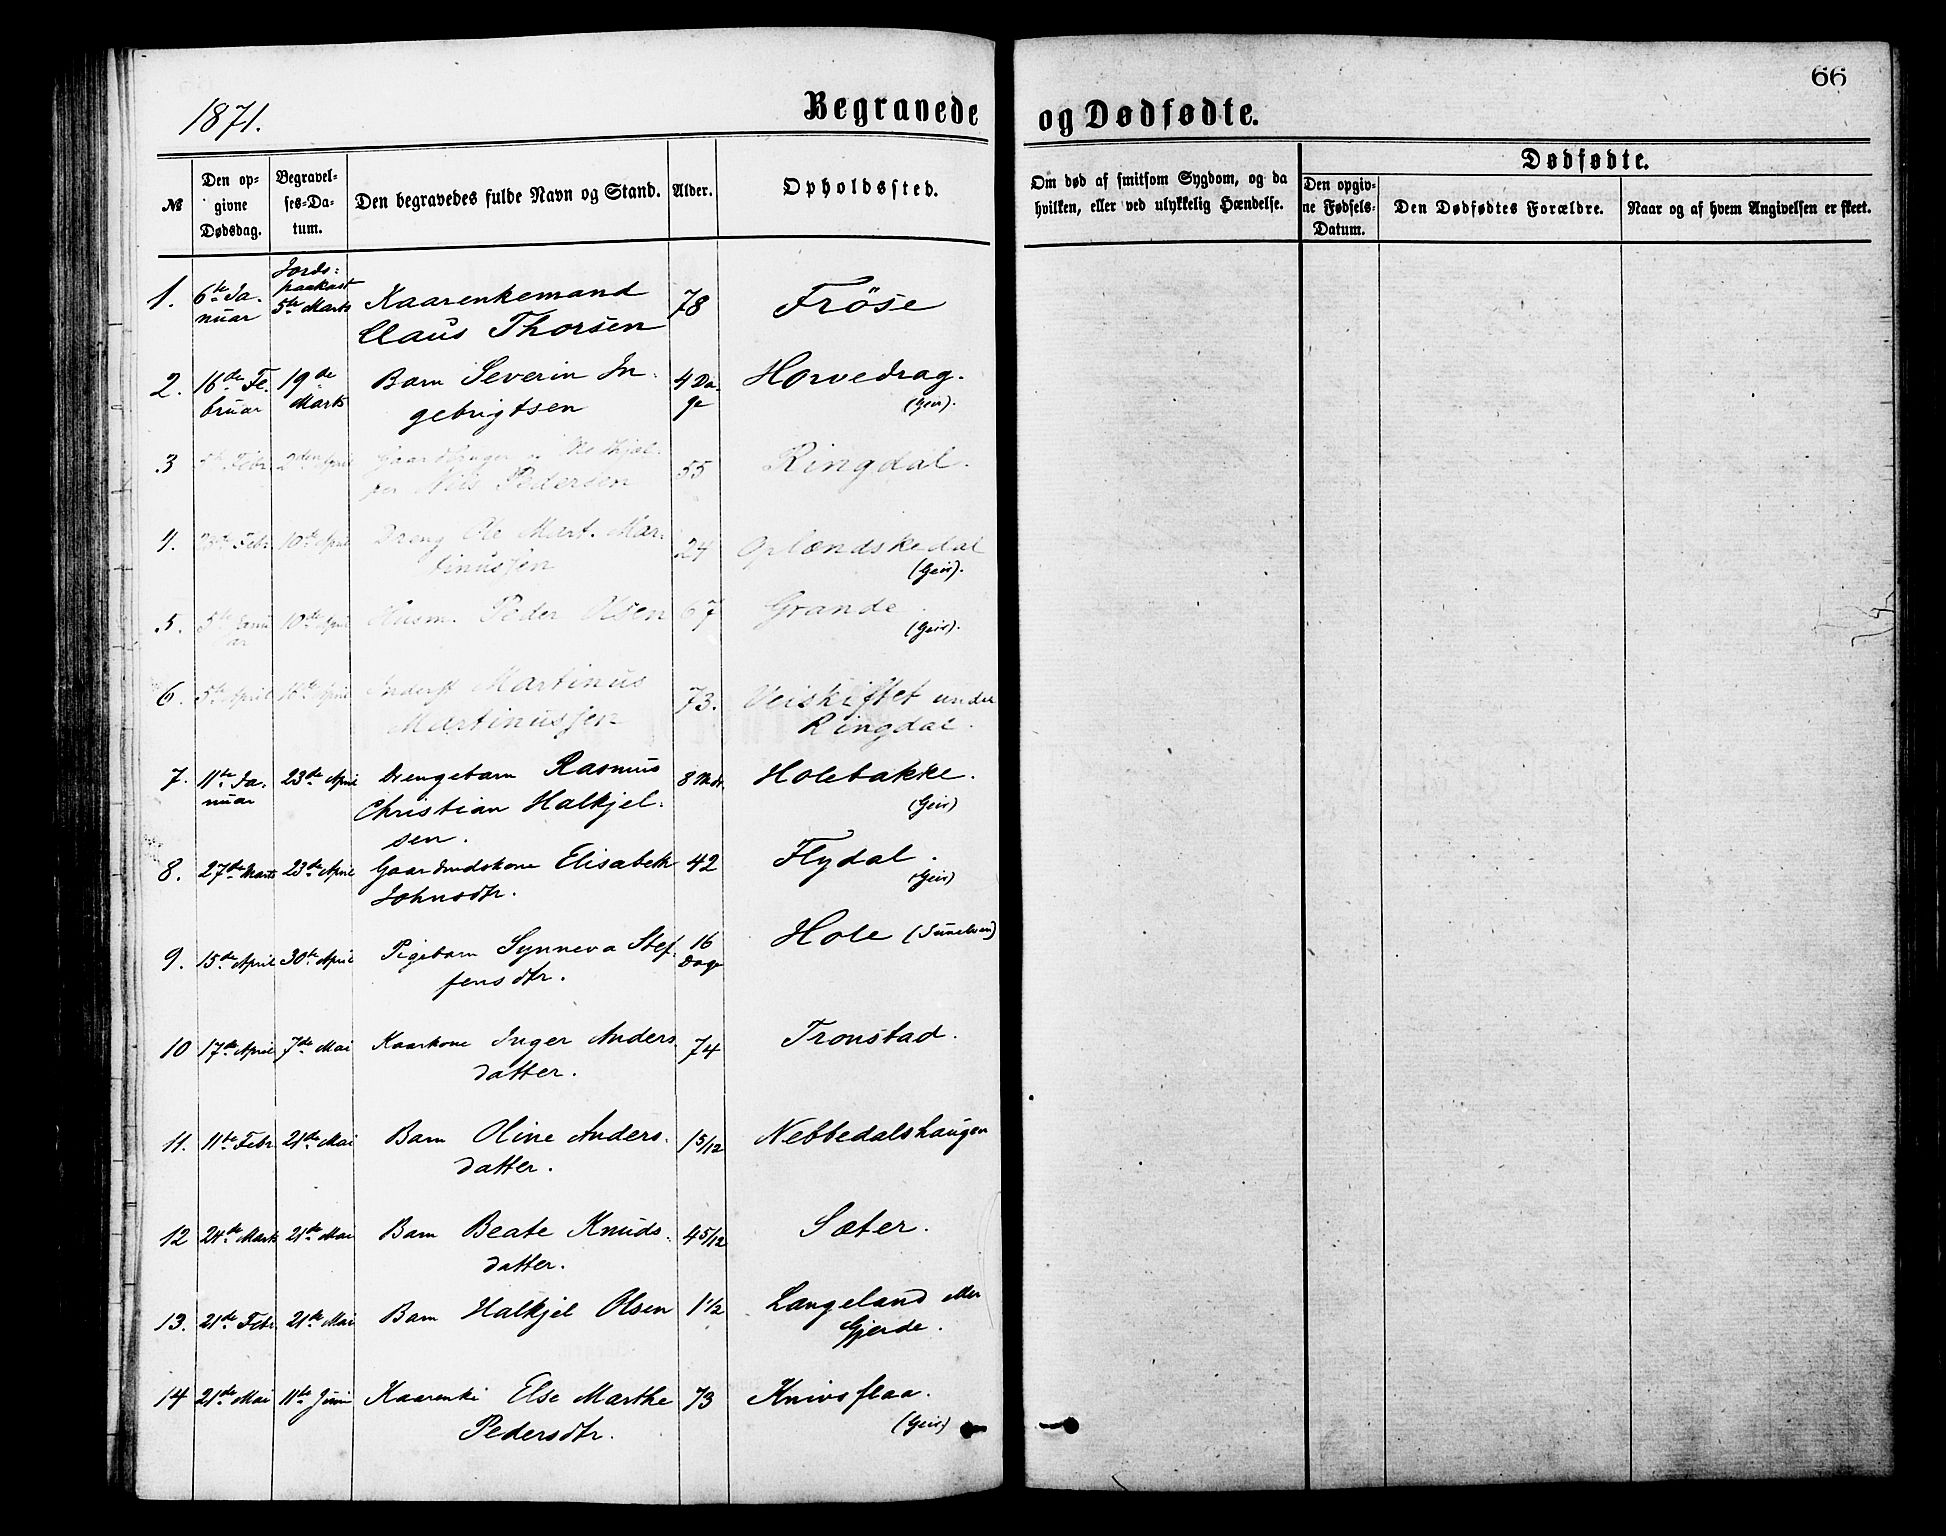 1871.
Begravede
og Dødfødte.
66
№
Den opgivne Dødsdag.
Begravelses-Datum.
Den begravedes fulde Navn og Stand.
Alder.
Opholdssted.
Om død af smitsom Sygdom, og da hvilken, eller ved ulykkelig Hændelse.
Dødfødte.
Den opgivne Fødsels-Datum.
Den Dødfødtes Forældre.
Naar og af hvem Angivelsen er skeet.
1. 6te Januar Jordspaakast 5te Marts Kaarenkemand Claus Thorsen 78 Frøse
2. 16de Februar 19de Marts Barn Severin Ingebrigtsen 4 Dage Horvedrag. (Geir).
3 Febr. 2den April Nils Pedersen 55 Ringdal.
4. Febr. 10de April Dreng Ole Mart. Martinussen 24 Oplændskedal (Geir).
5. 5te 10de April Husm. Peder Olsen 67 Grande (Geir).
6. 5te April 16de April Inderst Martinus Martinussen 73. Veiskiftet under Ringdal.
7. 11te Januar 23de April Drengebarn Rasmus Christian Halkjelsen. 8 Mdr. Holebakke. (Geir)
8. 27de Marts 23de April Gaardmdskone Elisabeth Johnsdtr. 42 Flydal. (Geir)
9. 15de April 30te April Pigebarn Synneva Steffensdtr. 16 Dage Hole (Sunelven)
10 17de April 7de Mai Kaarkone Inger Andersdatter. 74 Tronstad.
11. 11te Febr. 21de Mai Barn Oline Andersdatter. 1 5/12 Nebbedalshaugen
12 24de Marts 21de Mai Barn Beate Knudsdatter. 4 5/12 Sæter.
13. 21de Febr. 21de Mai Barn Halkjel Olsen 1 1/2 Langeland eller Gjerde.
14 21de Mai 11te Juni Kaarenke Else Marthe Pedersdtr. 73 Knivsflaa. (Geir)